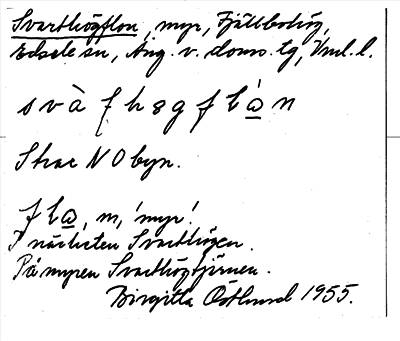 Svarthögflon, myr, Fjällbohög,
Edsele sn, Ång. v. doms. tg, Vnl. l.
svà f høg f lán
Strax N O byn.
fla, m, 'myr'.
I närheten Svarthögen.
På myren Svarthögtjärnen.
Birgitta Östlund 1955.